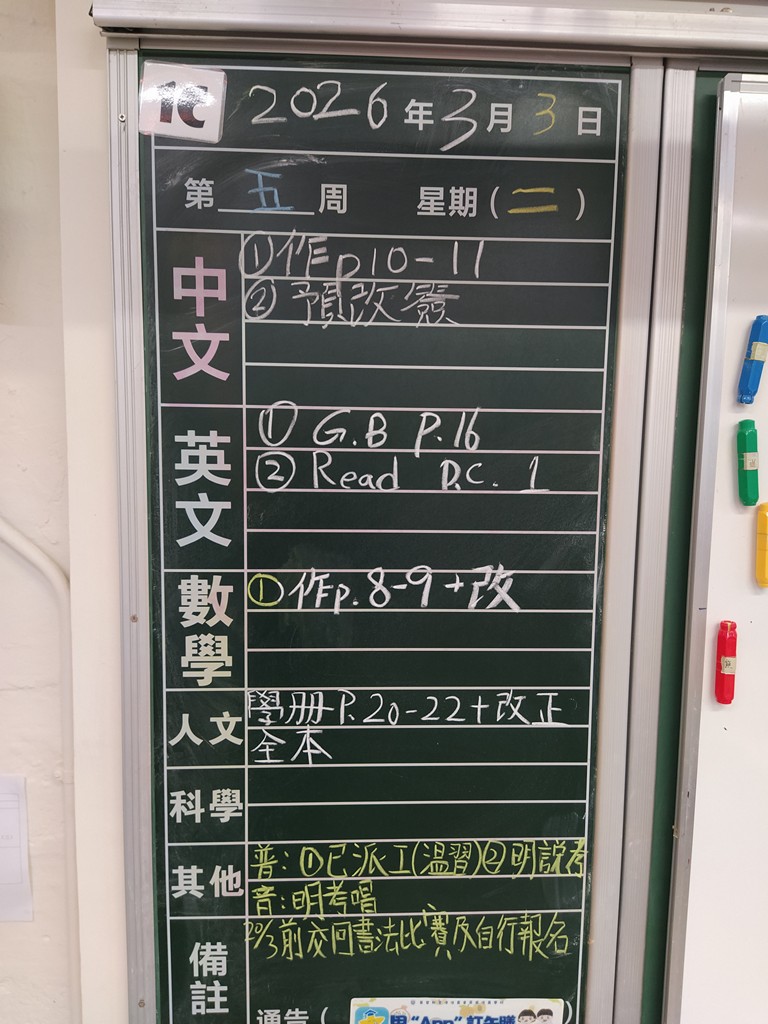 1C 2026年3月3日
第五周 星期(二)
中文
①作p10-11
②預改簽
英文
① G.B P.16
② Read D.C. 1
數學
①作p.8-9+改
人文
學册P.20-22+改正
全本
科學
其他
普:①已派工(溫習)②明說考
音:明考唱
備註
20/3前交回書法比賽及自行報名
通告(
用"App"訂午膳